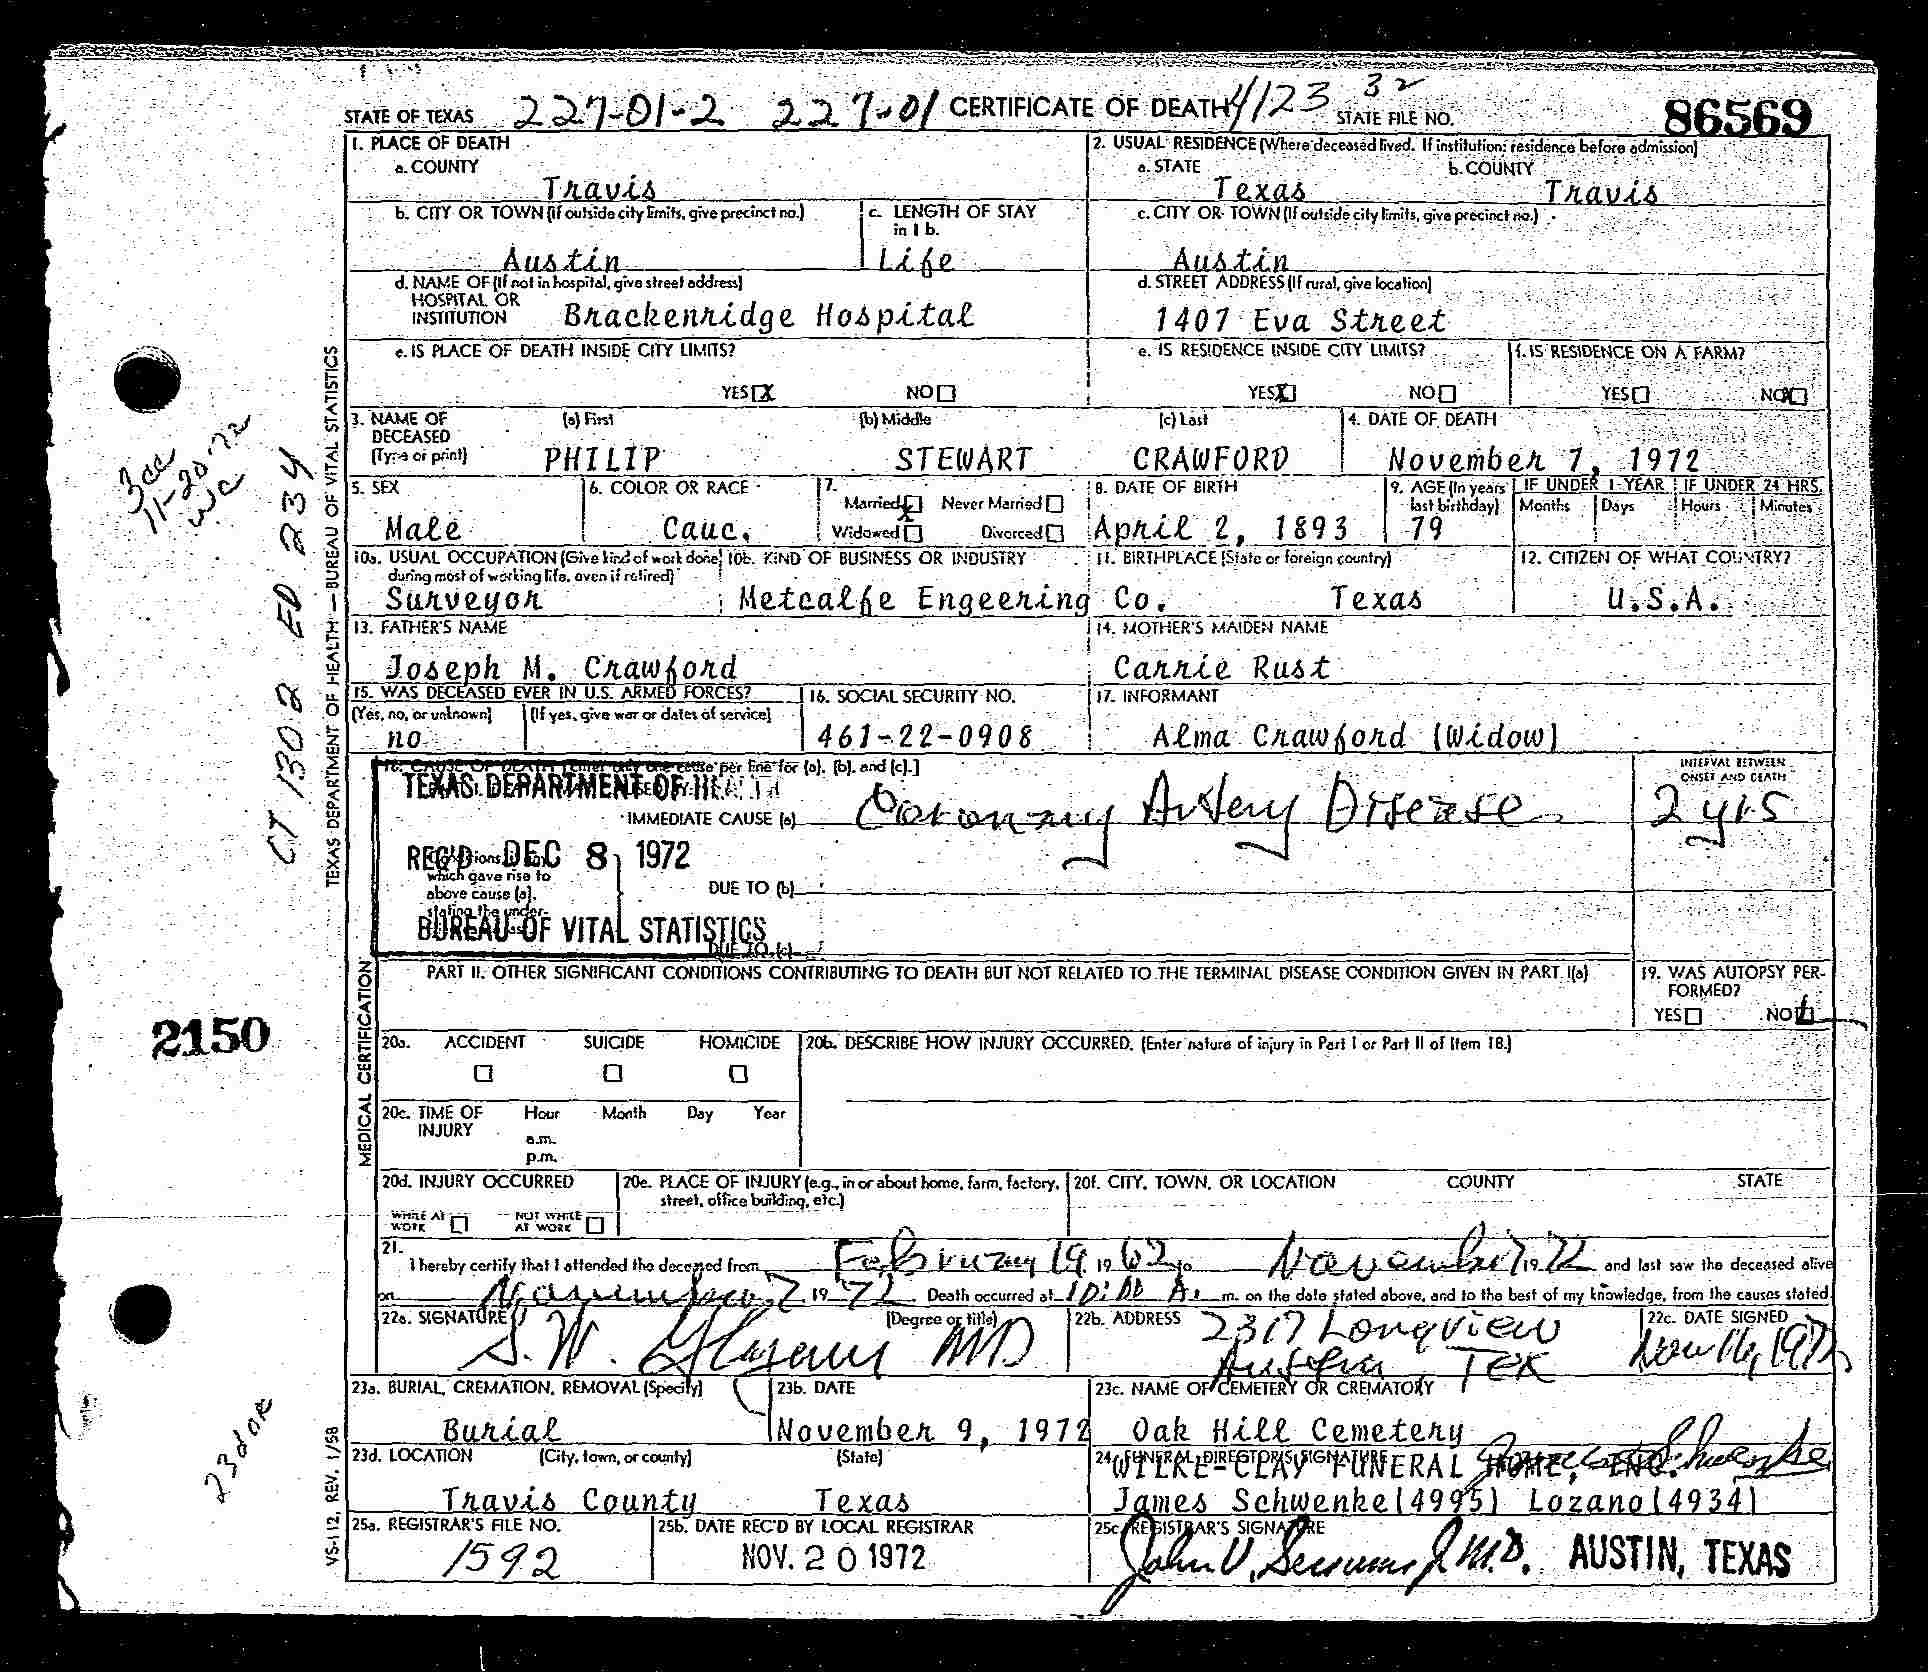 STATE OF TEXAS 227-01-2 227-01 CERTIFICATE OF DEATH 4123 32 STATE FILE NO. 86569
1. PLACE OF DEATH
a. COUNTY
Travis
2. USUAL RESIDENCE (Where deceased lived. If institution: residence before admission)
a. STATE b. COUNTY
Texas Travis
b. CITY OR TOWN (If outside city limits, give precinct no.)
Austin
c. LENGTH OF STAY in 1 b.
Life
c. CITY OR TOWN (If outside city limits, give precinct no.)
Austin
d. NAME OF (If not in hospital, give street address)
HOSPITAL OR
INSTITUTION Brackenridge Hospital
d. STREET ADDRESS (If rural, give location)
1407 Eva Street
e. IS PLACE OF DEATH INSIDE CITY LIMITS?
YES X NO
e. IS RESIDENCE INSIDE CITY LIMITS?
YES X NO
f. IS RESIDENCE ON A FARM?
YES NO X
3. NAME OF DECEASED (Type or print)
(a) First (b) Middle (c) Last
PHILIP STEWART CRAWFORD
4. DATE OF DEATH
November 7, 1972
5. SEX
Male
6. COLOR OR RACE
Cauc.
7.
Married X Never Married
Widowed Divorced
8. DATE OF BIRTH
April 2, 1893
9. AGE (In years last birthday)
79
IF UNDER 1 YEAR IF UNDER 24 HRS.
Months Days Hours Minutes
10a. USUAL OCCUPATION (Give kind of work done during most of working life, even if retired)
Surveyor
10b. KIND OF BUSINESS OR INDUSTRY
Metcalfe Engeering Co.
11. BIRTHPLACE (State or foreign country)
Texas
12. CITIZEN OF WHAT COUNTRY?
U.S.A.
13. FATHER'S NAME
Joseph M. Crawford
14. MOTHER'S MAIDEN NAME
Carrie Rust
15. WAS DECEASED EVER IN U.S. ARMED FORCES?
(Yes, no, or unknown) (If yes, give war or dates of service)
no
16. SOCIAL SECURITY NO.
461-22-0908
17. INFORMANT
Alma Crawford (Widow)
18. CAUSE OF DEATH [Enter only one cause per line for (a), (b), and (c).]
TEXAS DEPARTMENT OF HEALTH
IMMEDIATE CAUSE (a) Coronary Artery Disease
INTERVAL BETWEEN ONSET AND DEATH
2 yrs
REC'D DEC 8 1972
which gave rise to
above cause (a),
stating the under-
DUE TO (b)
BUREAU OF VITAL STATISTICS
DUE TO (c)
PART II. OTHER SIGNIFICANT CONDITIONS CONTRIBUTING TO DEATH BUT NOT RELATED TO THE TERMINAL DISEASE CONDITION GIVEN IN PART I(a)
19. WAS AUTOPSY PERFORMED?
YES NO
20a. ACCIDENT SUICIDE HOMICIDE
20b. DESCRIBE HOW INJURY OCCURRED. (Enter nature of injury in Part I or Part II of Item 18.)
20c. TIME OF INJURY Hour Month Day Year
a.m.
p.m.
20d. INJURY OCCURRED
WHILE AT WORK NOT WHILE AT WORK
20e. PLACE OF INJURY (e.g., in or about home, farm, factory, street, office building, etc.)
20f. CITY, TOWN, OR LOCATION COUNTY STATE
21.
I hereby certify that I attended the deceased from February 19 1962 to November 7 1972 and last saw the deceased alive
on November 7 1972. Death occurred at A. m. on the date stated above, and to the best of my knowledge, from the causes stated.
22a. SIGNATURE (Degree or title)
S. W. MD
22b. ADDRESS
2317 Longview
Austin Tex
22c. DATE SIGNED
Nov 16, 1972
23a. BURIAL, CREMATION, REMOVAL (Specify)
Burial
23b. DATE
November 9, 1972
23c. NAME OF CEMETERY OR CREMATORY
Oak Hill Cemetery
23d. LOCATION (City, town, or county) (State)
Travis County Texas
24. FUNERAL DIRECTOR'S SIGNATURE
WILKE-CLAY FUNERAL HOME, INC. James Schwenke
James Schwenke(4995) Lozano(4934)
25a. REGISTRAR'S FILE NO.
1592
25b. DATE REC'D BY LOCAL REGISTRAR
NOV. 20 1972
25c. REGISTRAR'S SIGNATURE
John V. M.D. AUSTIN, TEXAS
TEXAS DEPARTMENT OF HEALTH — BUREAU OF VITAL STATISTICS
MEDICAL CERTIFICATION
VS-112, REV. 1/58
3cc
11-20-72
WC
CT 1302 ED 234
2150
23d OR